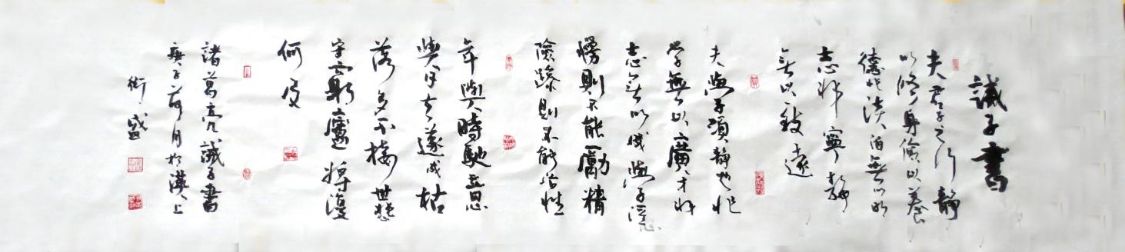 誡子書
夫君子之行靜
以修身儉以養
德非淡泊無以明
志非寧靜
無以致遠
夫學須靜也非
學無以廣才非
志無以成學淫
慢則不能勵精
險躁則不能治性
年與時馳意
與日去遂成枯
落多不接世悲
守窮廬將復
何及
諸葛亮誡子書
庚子荷月於漢上
盛